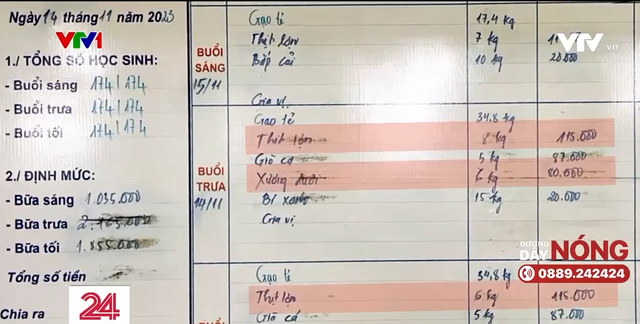 Ngày 14 tháng 11 năm 2023
VTV1
1./ TỔNG SỐ HỌC SINH:
- Buổi sáng 174/174
- Buổi trưa 174/174
- Buổi tối 174/174
2./ ĐỊNH MỨC:
- Bữa sáng 1.035.000
- Bữa trưa 2.165.000
- Bữa tối 1.855.000
Tổng số tiền
Chia ra
24
BUỔI SÁNG
15/11
Gạo tẻ 17,4 kg
Thịt lợn 7 kg
Bắp cải 10 kg 20.000
Gia vị
BUỔI TRƯA
14/11
Gạo tẻ 34,8 kg
Thịt lợn 8 kg 115.000
Giò cá 5 kg 87.000
Xương đuôi 6 kg 80.000
Bí xanh 15 kg 20.000
Gia vị
BUỔI
Gạo tẻ 34,8 kg
Thịt lợn 6 kg 115.000
Giò cá 5 kg 87.000
VTV.vn
ĐƯỜNG DÂY NÓNG
0889.242424